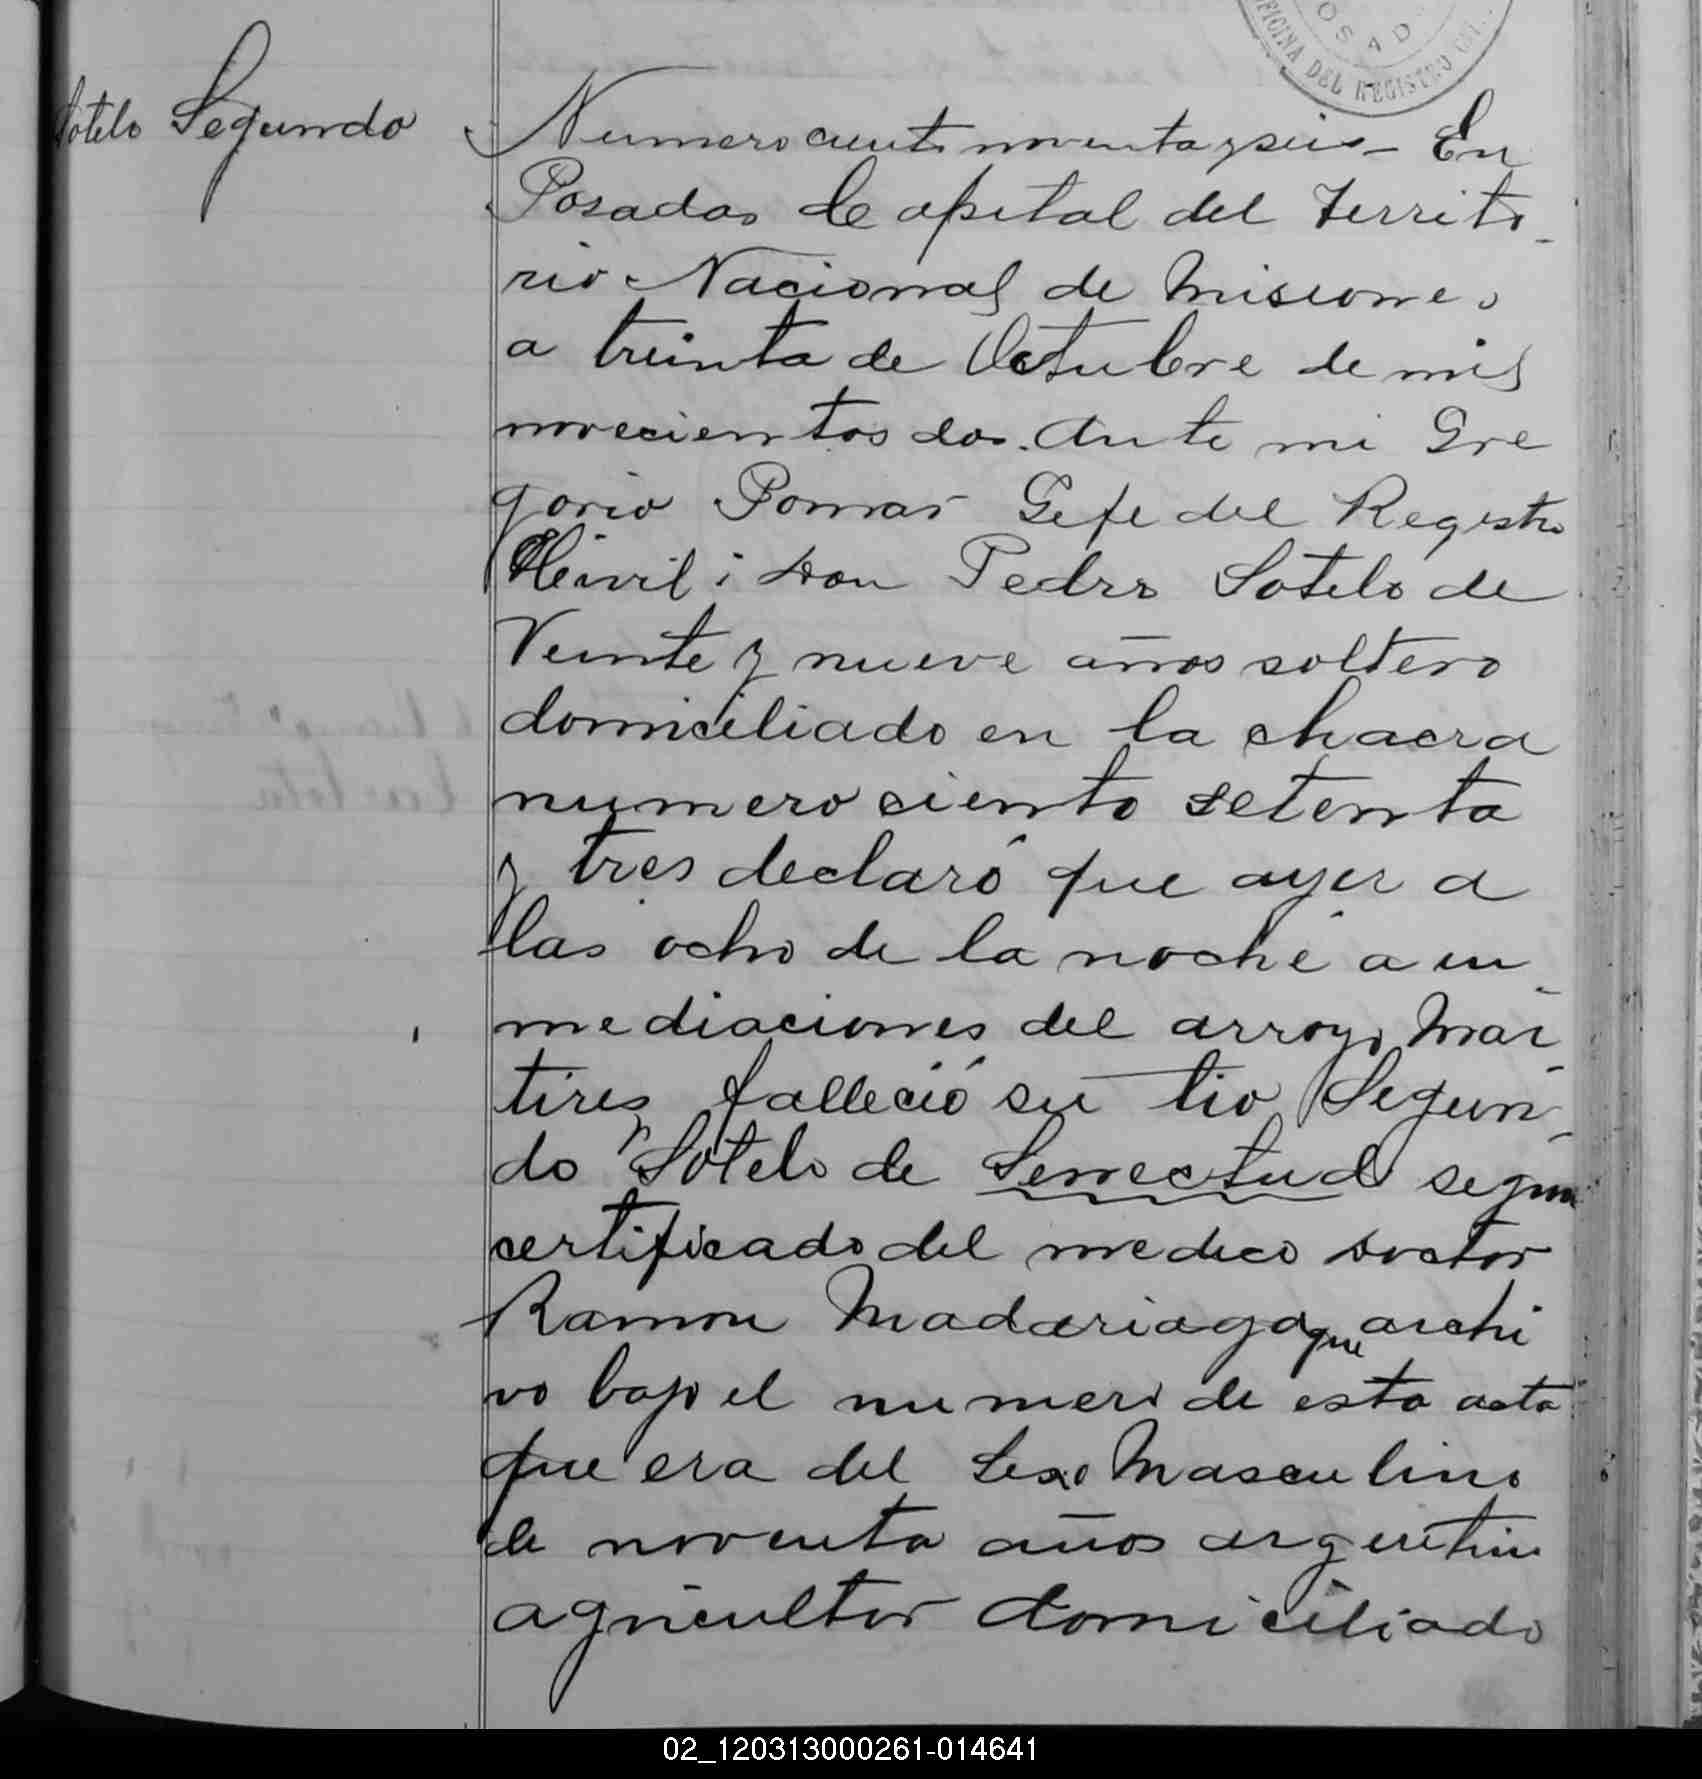 OSAD
OFICINA DEL REGISTRO CIV
Sotelo Segundo
Numero ciento noventa y seis - En
Posadas Capital del Territo-
rio Nacional de Misiones
a treinta de Octubre de mil
novecientos dos. Ante mi Gre
gorio Pomar Gefe del Registro
Civil; Don Pedro Sotelo de
Veinte y nueve años soltero
domiciliado en la chacra
numero ciento setenta
y tres declaró que ayer a
las ocho de la noche a in-
mediaciones del arroyo Mar-
tires falleció su tio Segun-
do Sotelo de Senectud segun
certificado del medico Doctor
Ramon Madariaga que archi
vo bajo el numero de esta acta
que era del Sexo Masculino
de noventa años argentino
agricultor domiciliado
02_120313000261-014641